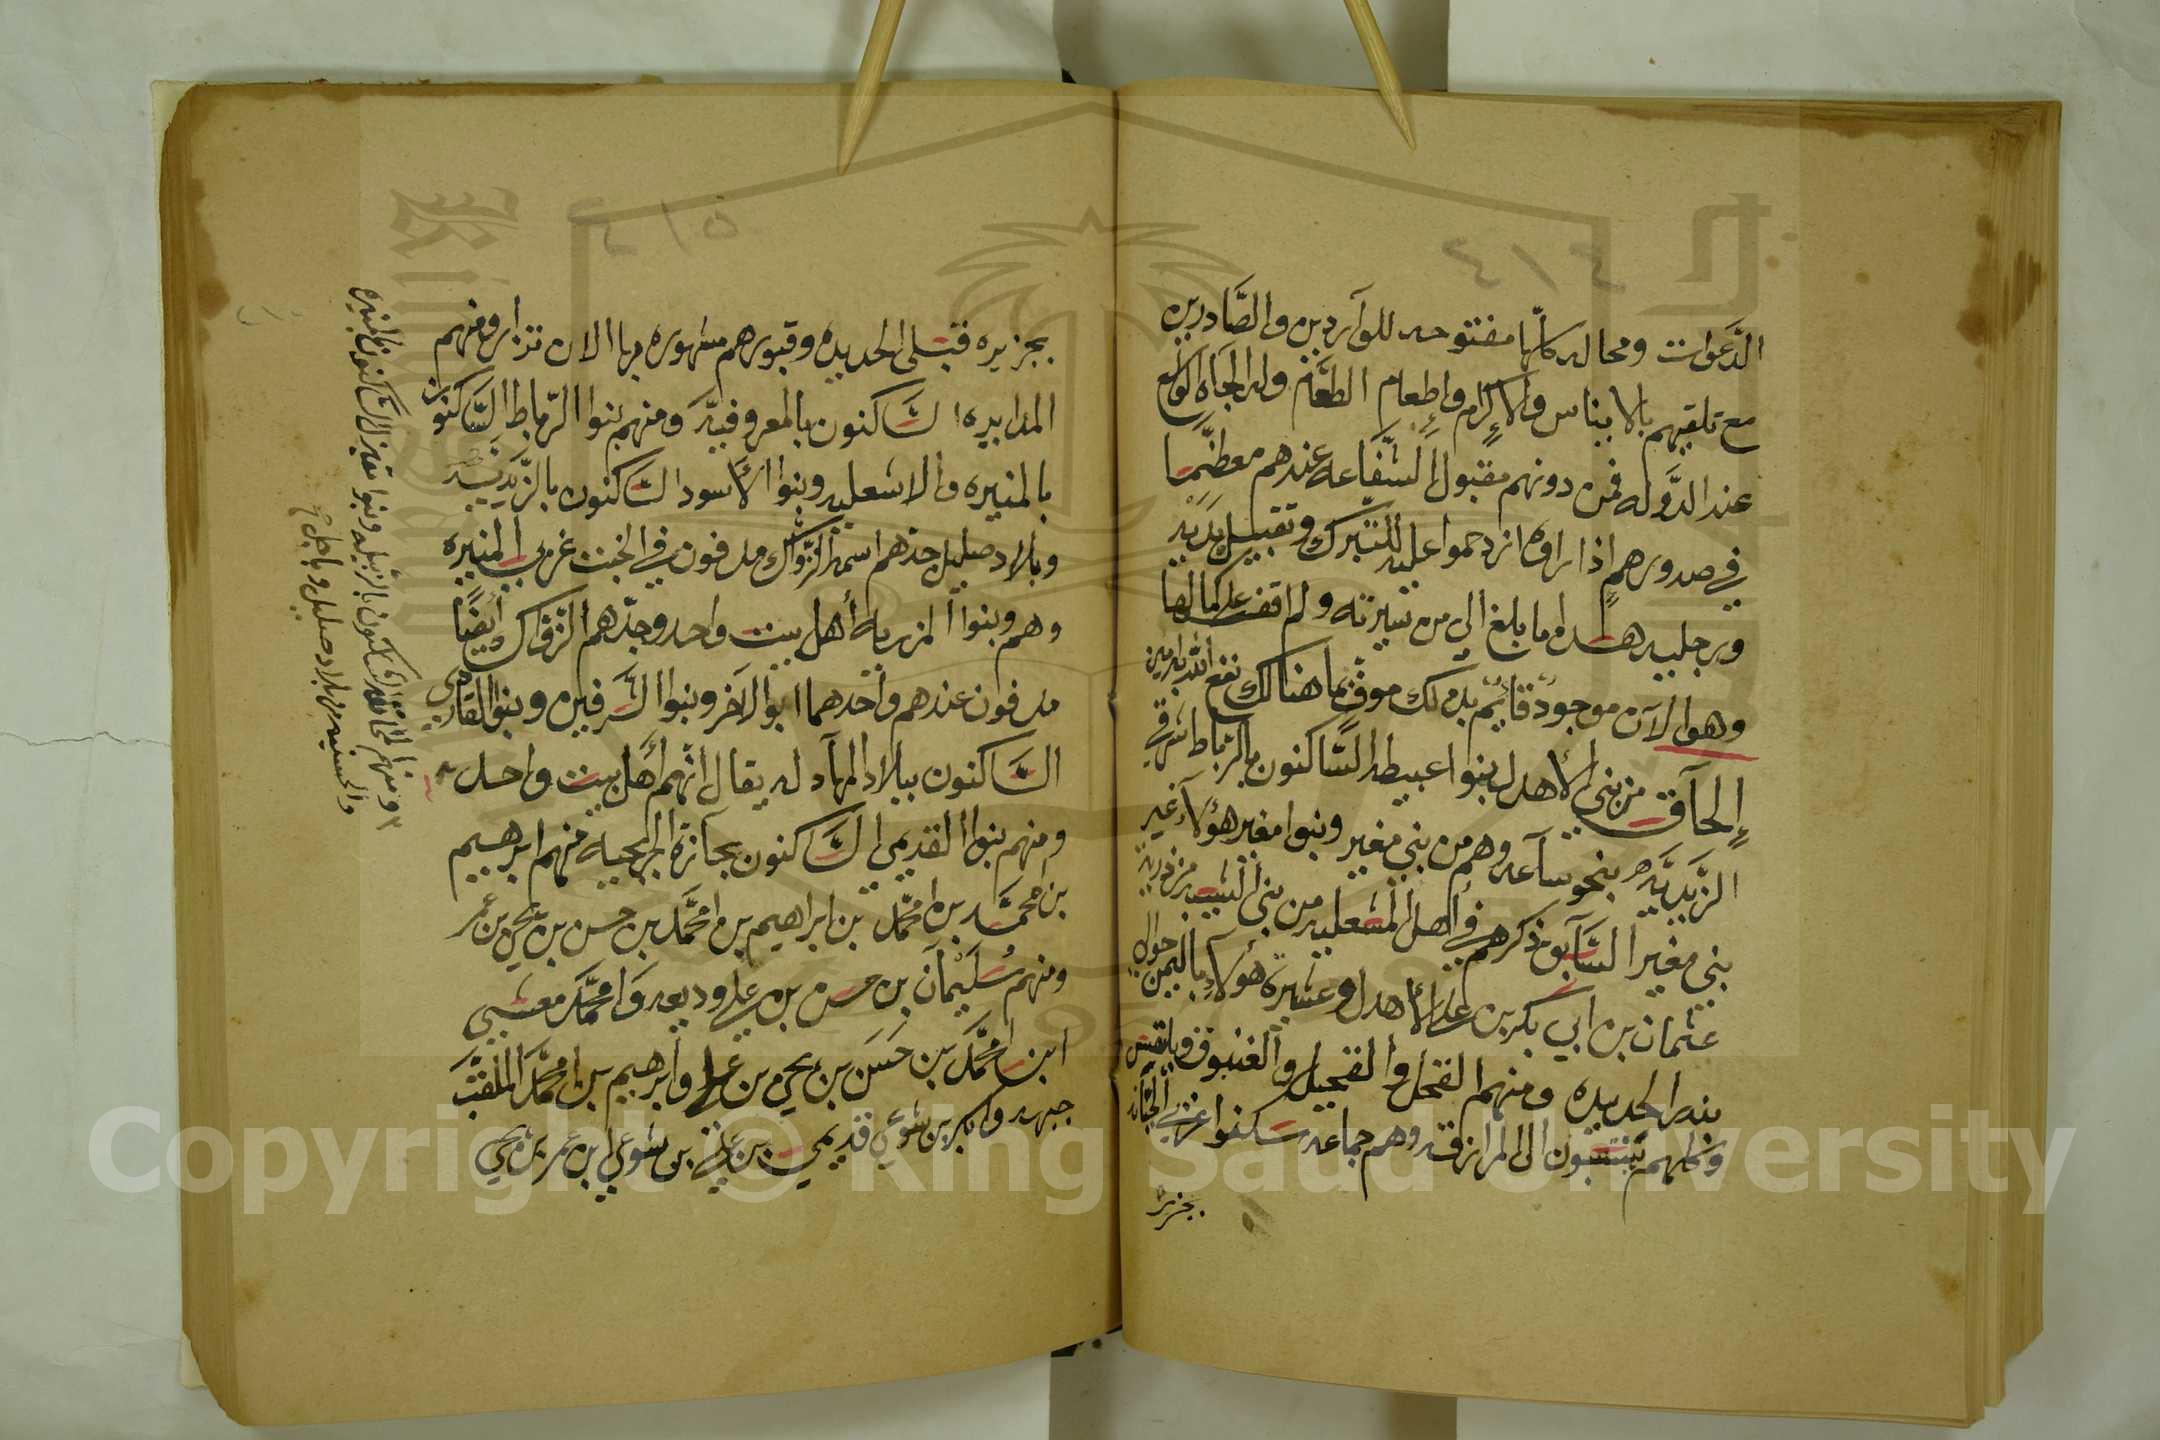 الدَّعوات ومحاله كلّها مفتوحه للوآردين والصَّادرين
مع تلقيهم بالايناس والاكرام وإطعام الطعَام وله الجاه الواسع
عند الدَّوله فمن دونهم مقبول الشفاعه عندهم معظّما
في صدورهم اذا راوه ازدحموا عليه للتبرك وتقبيل يديه
ورجليه هذا ما بلغ الي من سيرته ولم اقف على كمالها
وهو الآن موجود قائم بذلك موفي بما هنالك نفع الله به امين
إلحاق من بني الأهدل بنوا عبيط الساكنون بالرباط شرقي
الزَيديَّه بنحو ساعه وهم من بني مغير وبنوا مغير هؤلاء غير
بني مغير السابق ذكرهم في اهل المشعليه من بني الشيبه من ذرية
عثمان بن ابي بكر بن علي الأهدل وعشيرة هؤلاء باليمن حوالي
بندر الحديده ومنهم الفحل والفجيل والغنبوق
وكلهم ينتسبون الى المرازقه وهم جماعه سكنوا غربي
بجزيره
بجزيره قبلي الحديده وقبورهم مشهوره بها الان تزار ومنهم
المدابره الساكنون بالمعروفيّه ومنهم بنوا الرباط الساكنون
بالمنيره والاشعليه وبنوا الأسود الساكنون بالزَيديَّه
وبلاد صليل جدهم اسمه الزواك مدفون في الخبت غربي المنيره
وهم وبنوا المزرياه أهل بيت واحد وجدّهم الزّواك أيضًا
مدفون عندهم وأحدهما ابو الآخر وبنوا الشرفين وبنوا القادري
الساكنون ببلاد المهادله يقال انهم أهل بيت واحد
ومنهم بنوا القديمي الساكنون بحازة الجربحيه منهم ابرهيم
بن محمَّد بن امحمَّد بن ابراهيم بن امحمَّد بن حسن بن يحيى بن عمر
ومنهم سُليمآن بن حسن بن علي وديعه وَامحمَّد معشبي
ابن امحمَّد بن حَسَن بن يحيى بن علي وأبرهيم بن امحمَّد الملقَّب
جبهه وابكر بن شوعي قديمي بن علي بن شوعي ابن عمر بن يحيى
ومنهم الساكنون بالزيليه وبنوا مقبزل الساكنون بالمنيره
والحسينيه من بلاد صليل وباجل صح
Copyright © King Saud University
King Saud University